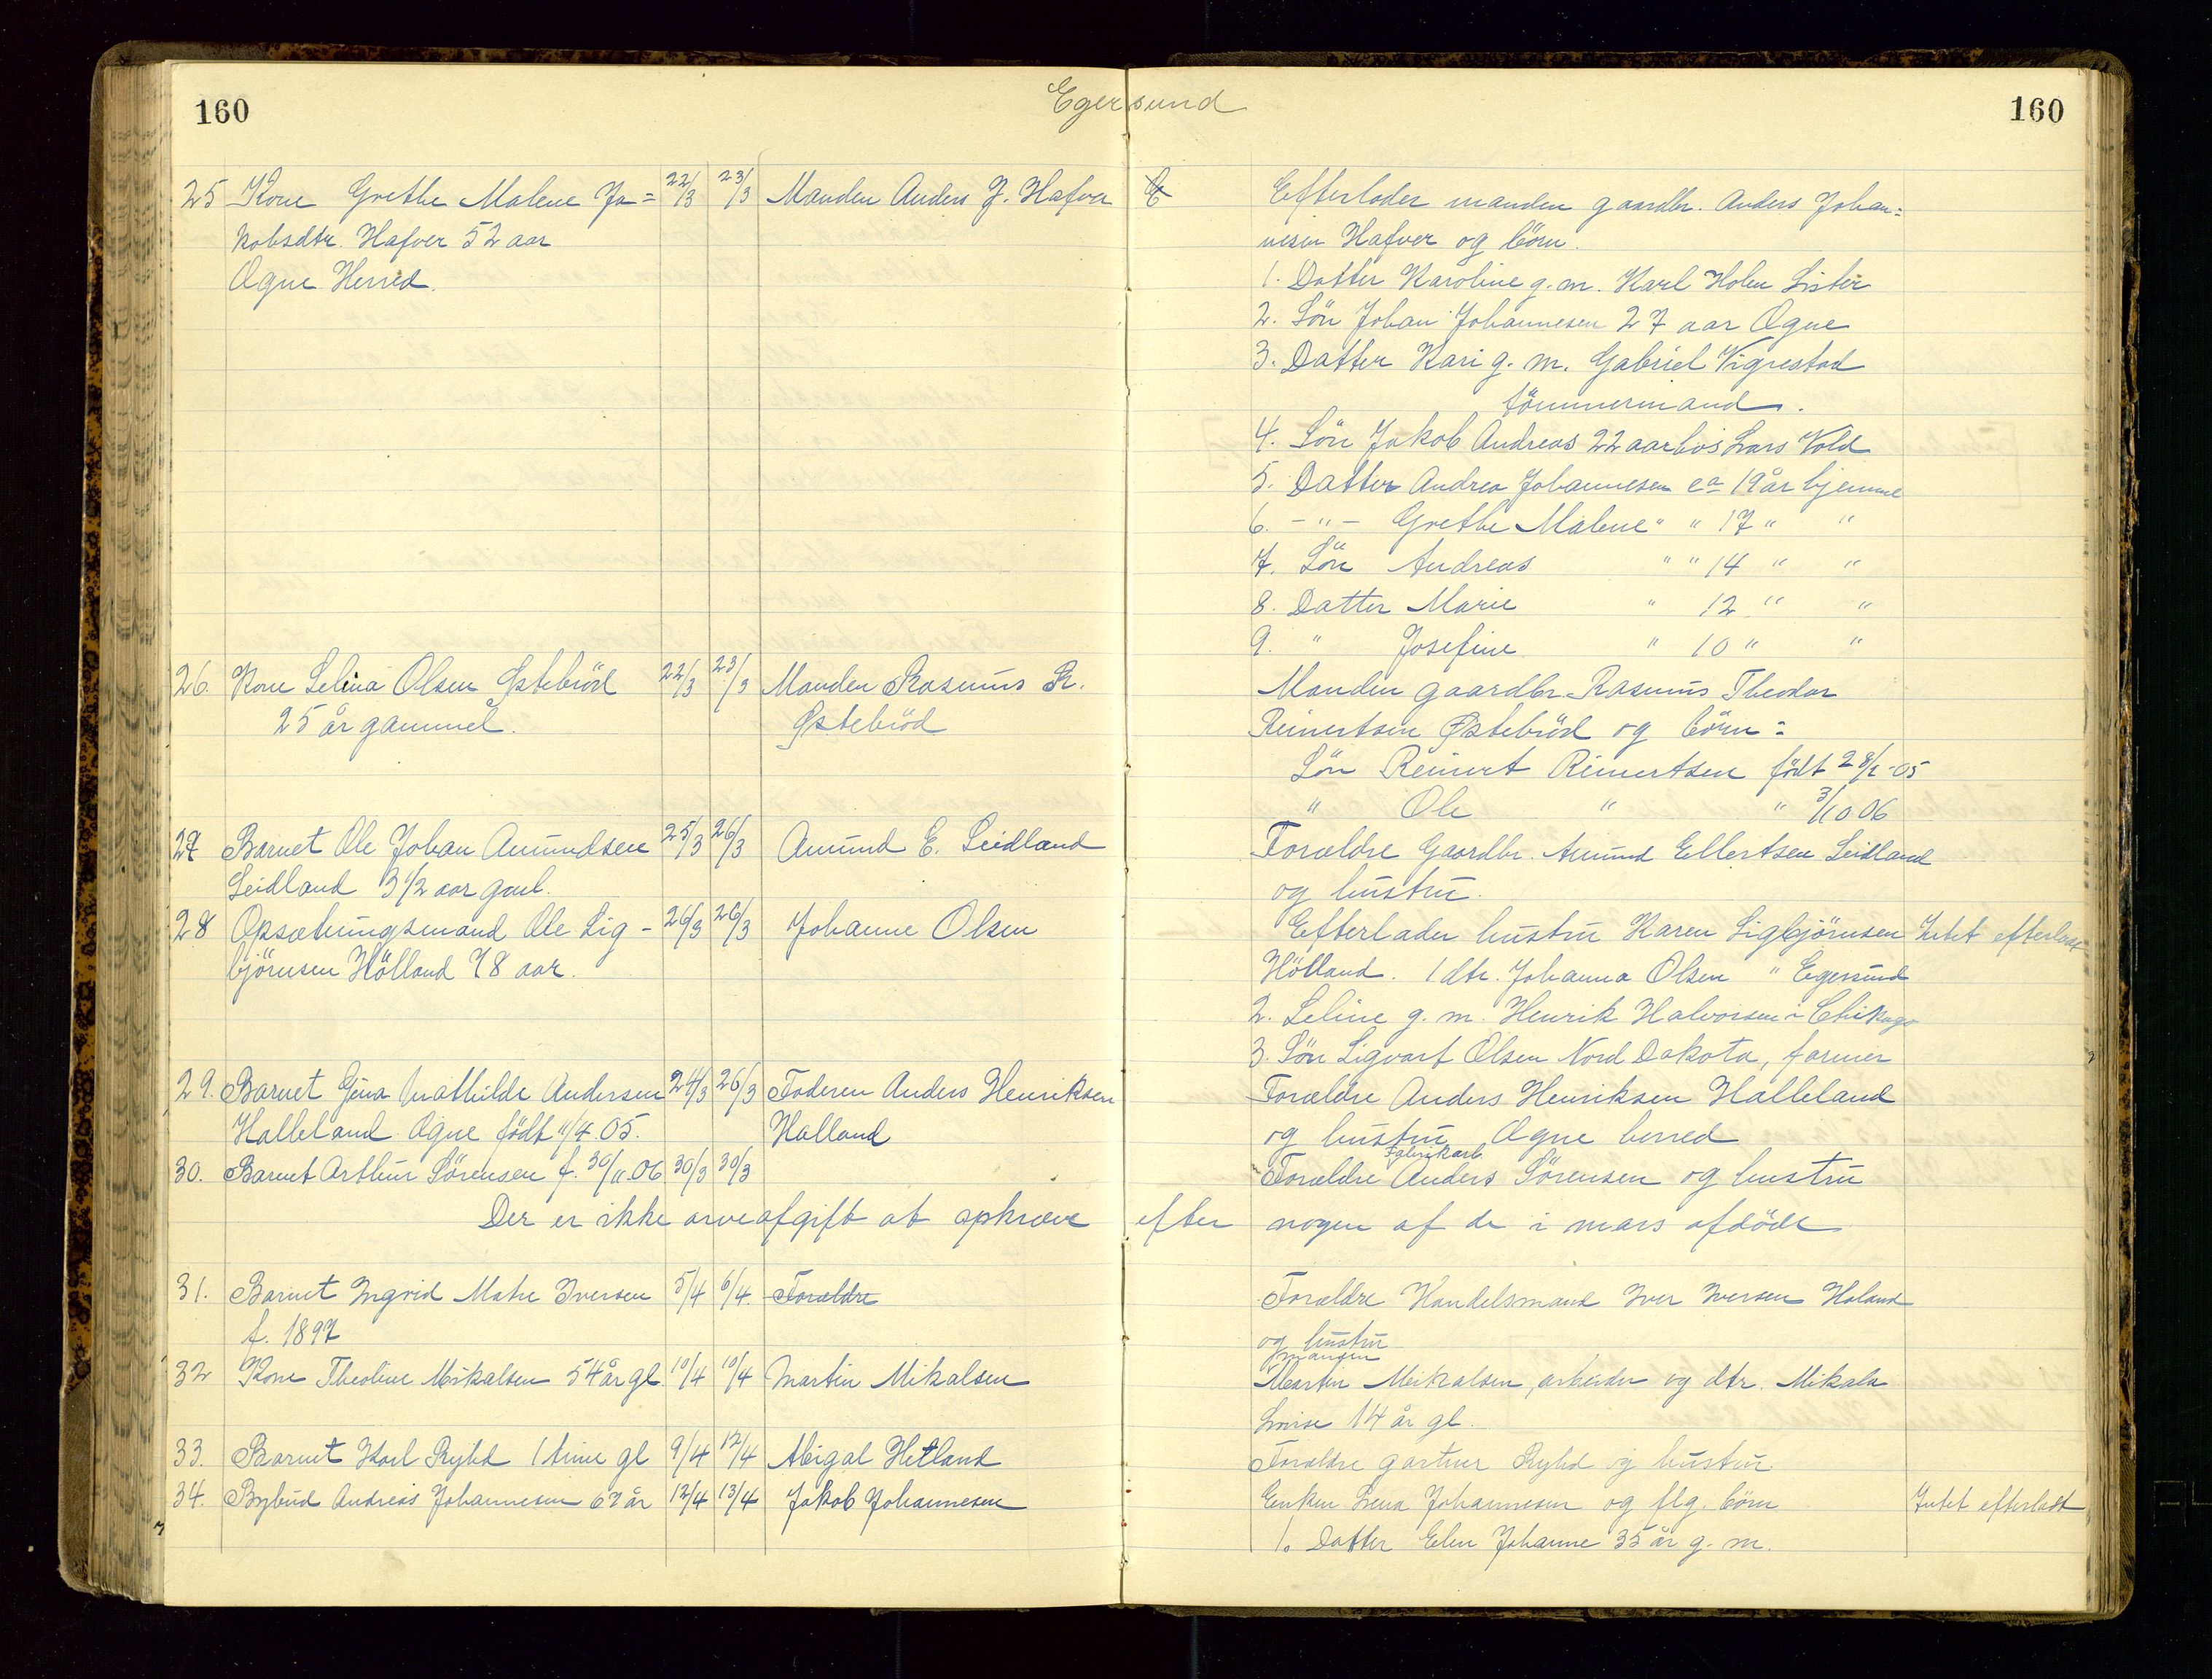 160
Egersund
160
25 Kone Grethe Malene Ja=
kobsdtr. Hafver 52 aar
Ogne Herred.
22/3 23/3 Manden Anders J. Hafver
Efterlader manden gaardbr. Anders Johan=
nesen Hafver og börn.
1. Datter Karoline g. m. Karl Holen Lister
2. Sön Johan Johannesen 27 aar Ogne
3. Datter Kari g. m. Gabriel Vigrestad
tömmermand.
4. Sön Jakob Andreas 22 aar hos Lars Vold
5. Datter Andrea Johannesen ca 19 år hjemme
6. - " - Grethe Malene " " 17 " "
7. Sön Andreas " " 14 " "
8. Datter Marie " 12 " "
9. " Josefine " 10 " "
26. Kone Selina Olsen Østebröd
25 år gammel.
22/3 23/3 Manden Rasmus R.
Østebröd
Manden gaardbr. Rasmus Theodor
Reinertsen Østebröd og börn:
Sön Reinert Reinertsen födt 28/2-05
" Ole " " 3/10 06
27 Barnet Ole Johan Amundsen
Seidland 3 1/2 aar gml.
25/3 26/3 Amund E. Seidland
Forældre Gaardbr. Amund Ellertsen Seidland
og hustru.
28 Opsætningsmand Ole Sig-
björnsen Hölland 78 aar.
26/3 26/3 Johanne Olsen
Efterlader hustru Karen Sigbjörnsen Intet efterladt
Hölland. 1 dtr. Johanna Olsen " Egersund
2. Seline g. m. Henrik Halvorsen i Chikago
3. Sön Sigvart Olsen Nord Dakota, farmer
29. Barnet Gina Mathilde Andersen
Halleland Ogne födt 11/4.05.
24/3 26/3 Faderen Anders Henriksen
Halland
Forældre Anders Henriksen Halleland
og hustru Ogne herred
30. Barnet Arthur Sörensen f. 30/11.06 30/3 30/3
fabrikarb.
Forældre Anders Sörensen og hustru
Der er ikke arveafgift at opkræve efter nogen af de i mars afdöde
31. Barnet Ingvid Mathe Iversen
f. 1897
5/4 6/4. Forældre
Forældre Handelsmand Iver Iversen Holand
og hustru
32 Kone Theoline Mikalsen 54 år gl. 10/4 10/4 Martin Mikalsen
manden
Martin Mikalsen, arbeider og dtr. Mikala
Lovise 14 år gl.
33. Barnet Karl Ryhd 1 time gl 9/4 12/4 Abigal Hetland
Forældre gartner Ryhd og hustru.
34. Bybud Andreas Johannesen 62 år 12/4 13/4 Jakob Johannesen
Enken Lena Johannesen og flg. börn Intet efterladt
1. Datter Elen Johanne 35 år g. m.